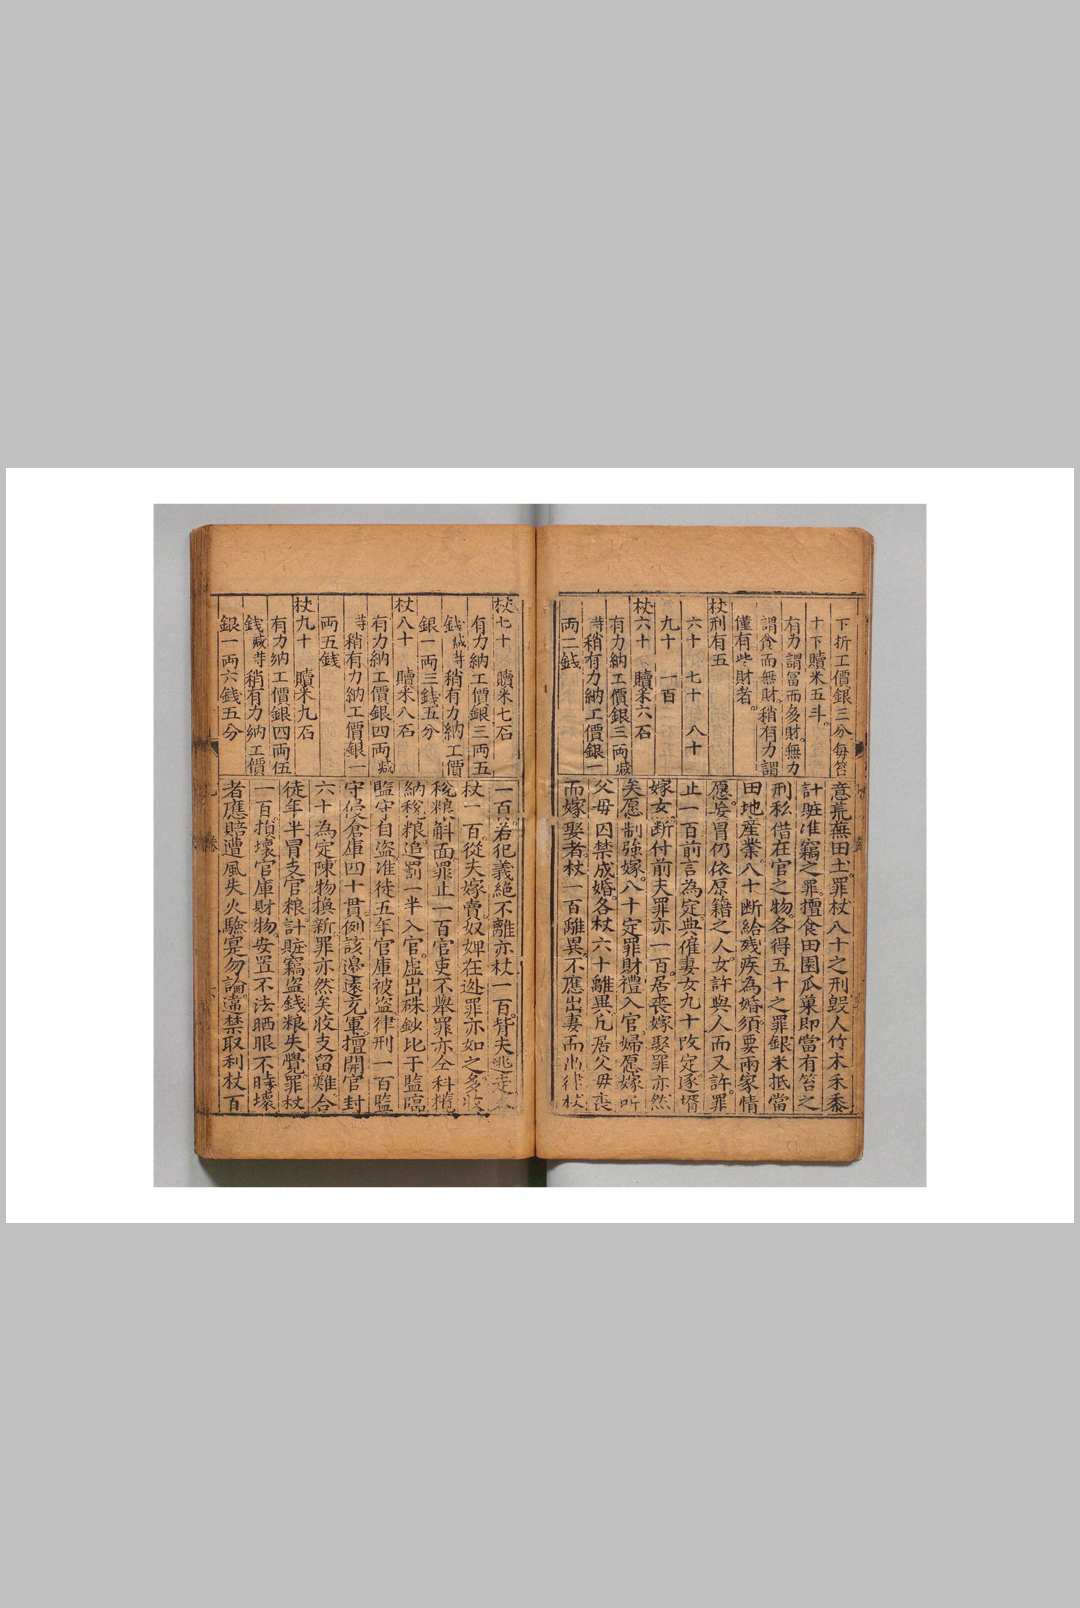 下折工價銀三分每笞
十下贖米五斗
有力謂冨而多財無力
謂貧而無財稍有力謂
僅有些財者
杖刑有五
六十　七十　八十
九十　一百
杖六十　贖米六石
有力納工價銀三両減
等稍有力納工價銀一
両二銭
意荒蕪田土罪杖八十之刑毀人竹木禾黍
計賍准竊之罪擅食田園瓜菓即當有笞之
刑私借在官之物各得五十之罪銀米抵當
田地産業八十断給残疾為婚須要両家情
愿妄冒仍依原籍之人女許與人而又許罪
止一百前言為定典僱妻女九十改定逐壻
嫁女断付前夫罪亦一百居丧嫁娶罪亦然
矣愿制強嫁八十定罪財禮入官婦愿嫁听
父毋囚禁成婚各杖六十離異凢居父毋丧
而嫁娶者杖一百離異不應出妻而出律杖
杖七十　贖米七石
有力納工價銀三両五
銭減等稍有力納工價
銀一両三銭五分
杖八十　贖米八石
有力納工價銀四両減
等稍有力納工價銀一
両五銭
杖九十　贖米九石
有力納工價銀四両伍
銭減等稍有力納工價
銀一両六銭五分
一百若犯義絶不離亦杖一百背夫逃走
杖一百從夫嫁賣奴婢在迯罪亦如之多收
税粮斛面罪止一百官吏不舉罪亦仝科攬
納税粮追罰一半入官虚出硃鈔比于監臨
監守自盗准徒五年官庫被盗律刑一百監
守侵倉庫四十貫例該邉遠充軍擅開官封
六十為定陳物換新罪亦然矣收支留難合
徒年半冒支官粮計賍竊盗銭粮失覺罪杖
一百損壊官庫財物安置不法晒眼不時壊
者應賠遭風失火驗寔勿論違禁取利杖百